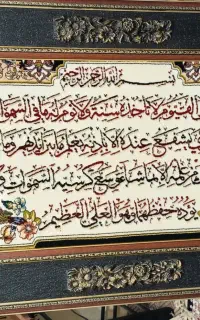 بسم الله الرحمن الرحيم
القيوم لا تأخذه سنة ولا نوم له ما في السموات
يشفع عنده إلا بإذنه يعلم ما بين أيديهم وما
من علمه إلا بما شاء وسع كرسيه السموات
يؤده حفظهما وهو العلي العظيم